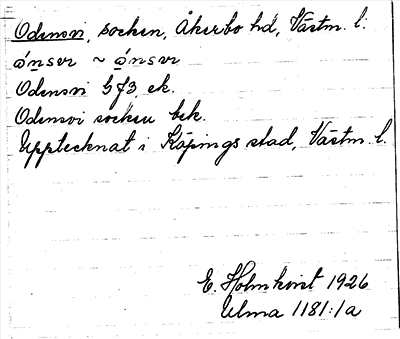 Odensvi, socken, Åkerbo hd, Västm. l.
ónsvr ~ ónsvr
Odensvi 373, ek.
Odensvi socken bek.
Upptecknat i Köpings stad, Västm. l.
E. Holmkvist 1926
Ulma 1181:1a